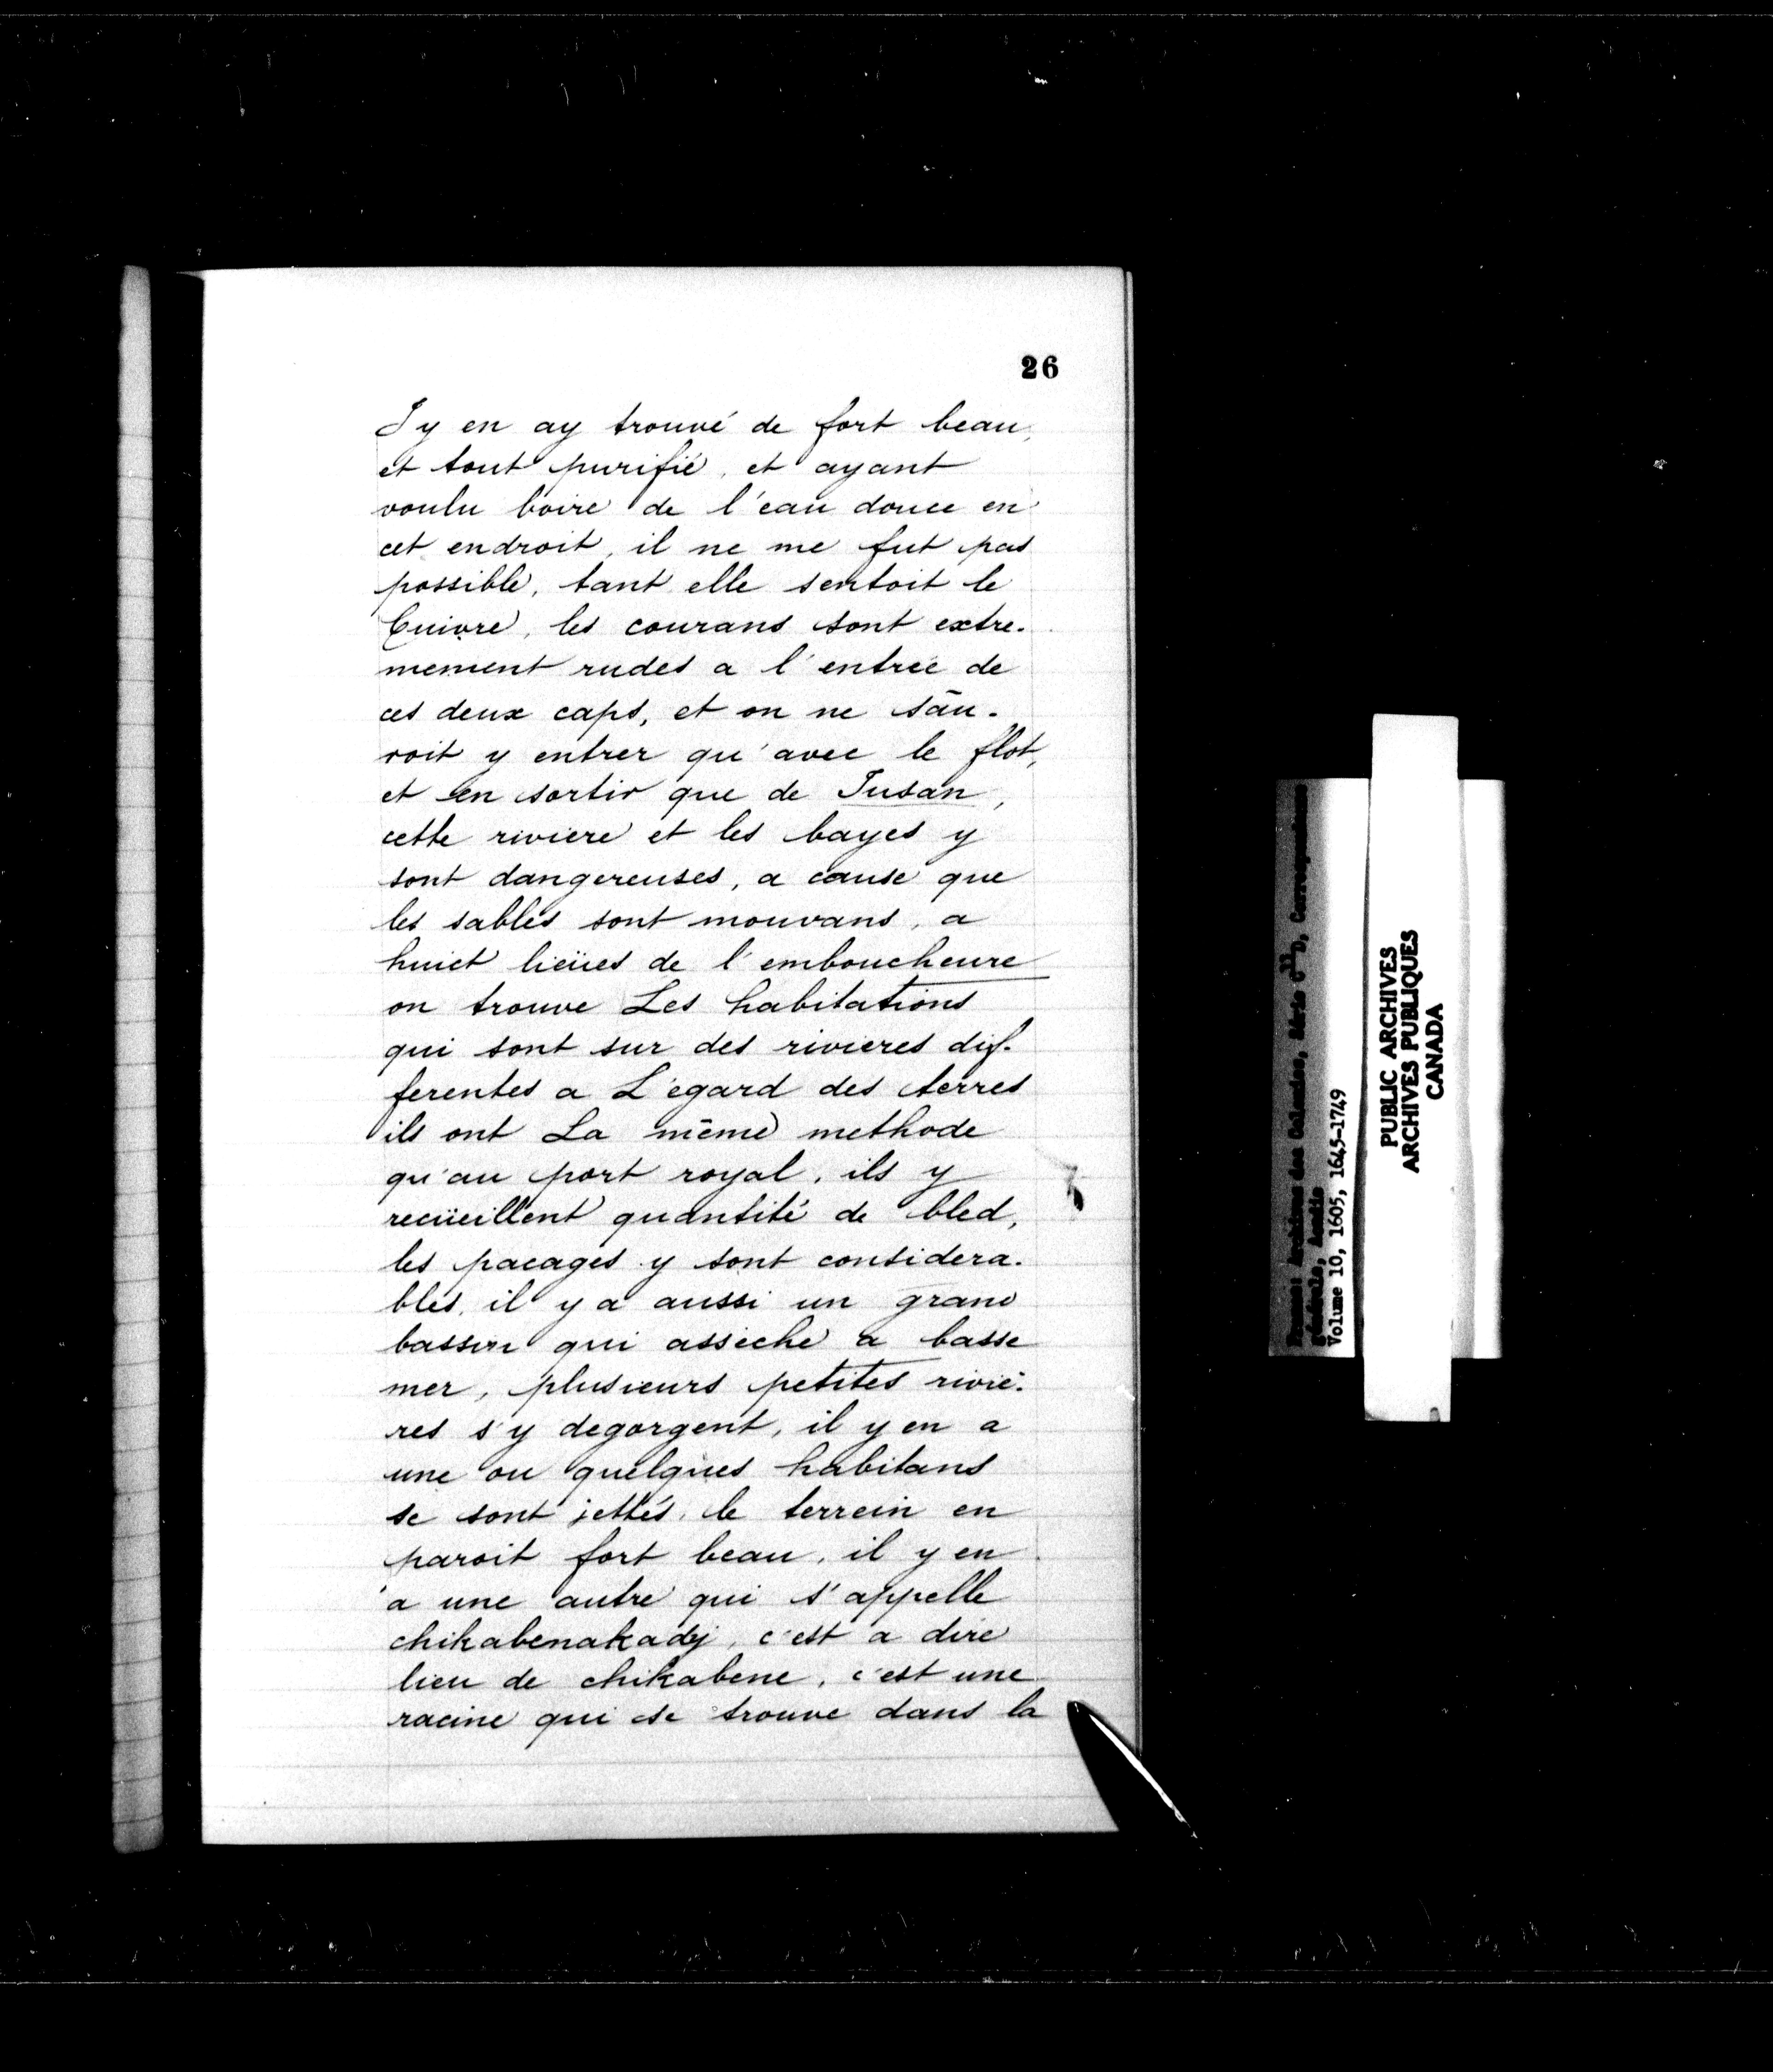 26
J y en ay trouvé de fort beau,
et tout purifié, et ayant
voulu boire de l'eau douce en
cet endroit, il ne me fut pas
possible, tant elle sentoit le
Cuivre, les courans sont extre-
mement rudes a l'entrée de
ces deux caps, et on ne sau-
roit y entrer qu'avec le flot,
et en sortir que de Jusan,
cette riviere et les bayes y
sont dangereuses, a cause que
les sables sont mouvans, a
huict lieües de l'emboucheure
on trouve Les habitations
qui sont sur des rivieres dif-
ferentes a L'egard des terres
ils ont La même methode
qu'au port royal, ils y
recüeillent quantité de bled,
les pacages y sont considera-
bles, il y a aussi un grand
bassin qui asseche a basse
mer, plusieurs petites rivie-
res s'y degorgent, il y en a
une ou quelques habitans
se sont jettés, le terrein en
paroit fort beau, il y en
a une autre qui s'appelle
chikabenakadj, c'est a dire
lieu de chikabene, c'est une
racine qui se trouve dans la
PUBLIC ARCHIVES
ARCHIVES PUBLIQUES
CANADA
France: Archives des Colonies, Série C11D, Correspondance
générale, Acadie
Volume 10, 1605, 1645-1749